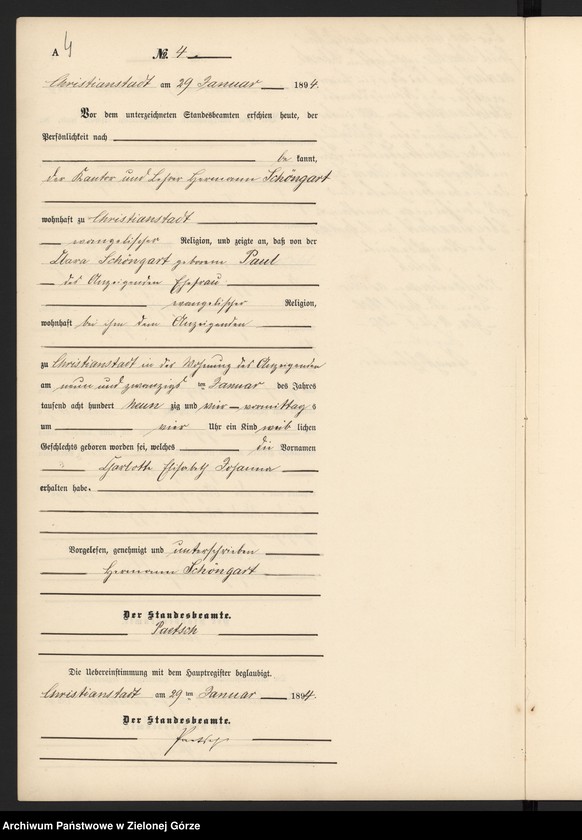 A 4 No. 4
Christianstadt am 29 Januar 1894.
Vor dem unterzeichneten Standesbeamten erschien heute, der
Persönlichkeit nach
be kannt,
der Kantor und Lehrer Hermann Schöngart
wohnhaft zu Christianstadt
evangelischer Religion, und zeigte an, daß von der
Klara Schöngart geborene Paul
des Anzeigenden Ehefrau
evangelischer Religion,
wohnhaft bei ihm dem Anzeigenden
zu Christianstadt in der Wohnung des Anzeigenden
am neun und zwanzigsten Januar des Jahres
tausend acht hundert neun zig und vier vormittag s
um vier Uhr ein Kind weib lichen
Geschlechts geboren worden sei, welches die Vornamen
Charlotte Elisabeth Johanna
erhalten habe.
Vorgelesen, genehmigt und unterschrieben
Hermann Schöngart
Der Standesbeamte.
Paetsch
Die Uebereinstimmung mit dem Hauptregister beglaubigt.
Christianstadt am 29ten Januar 1894.
Der Standesbeamte.
Paetsch
Archiwum Państwowe w Zielonej Górze